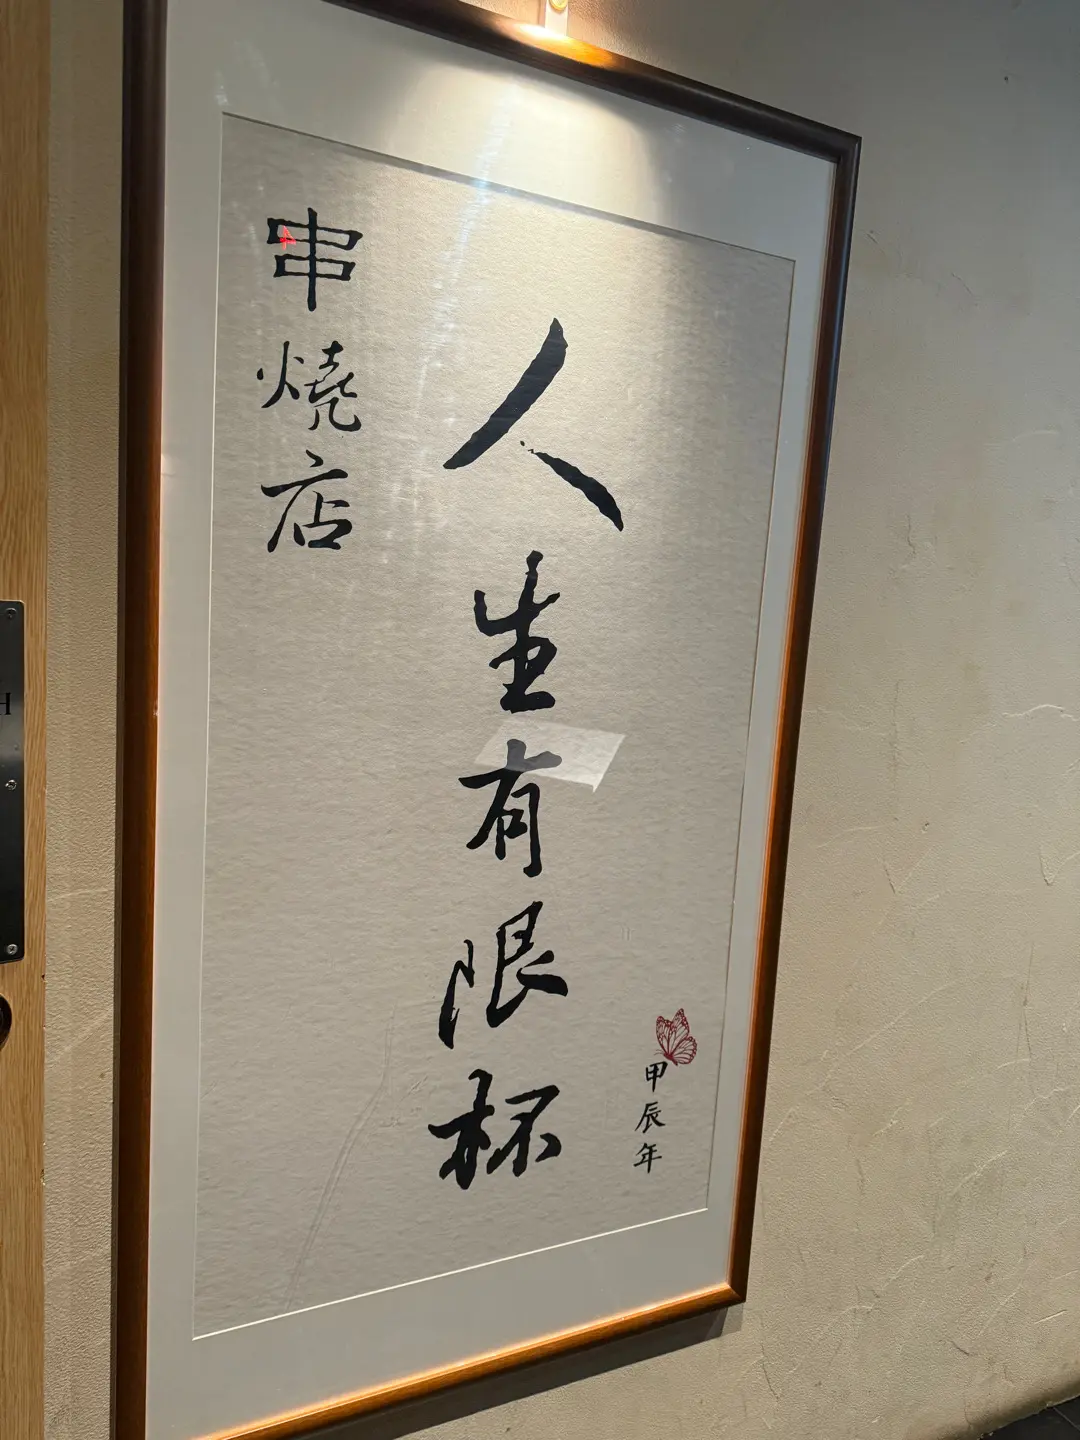 甲辰年
人生有限杯
串燒店
H